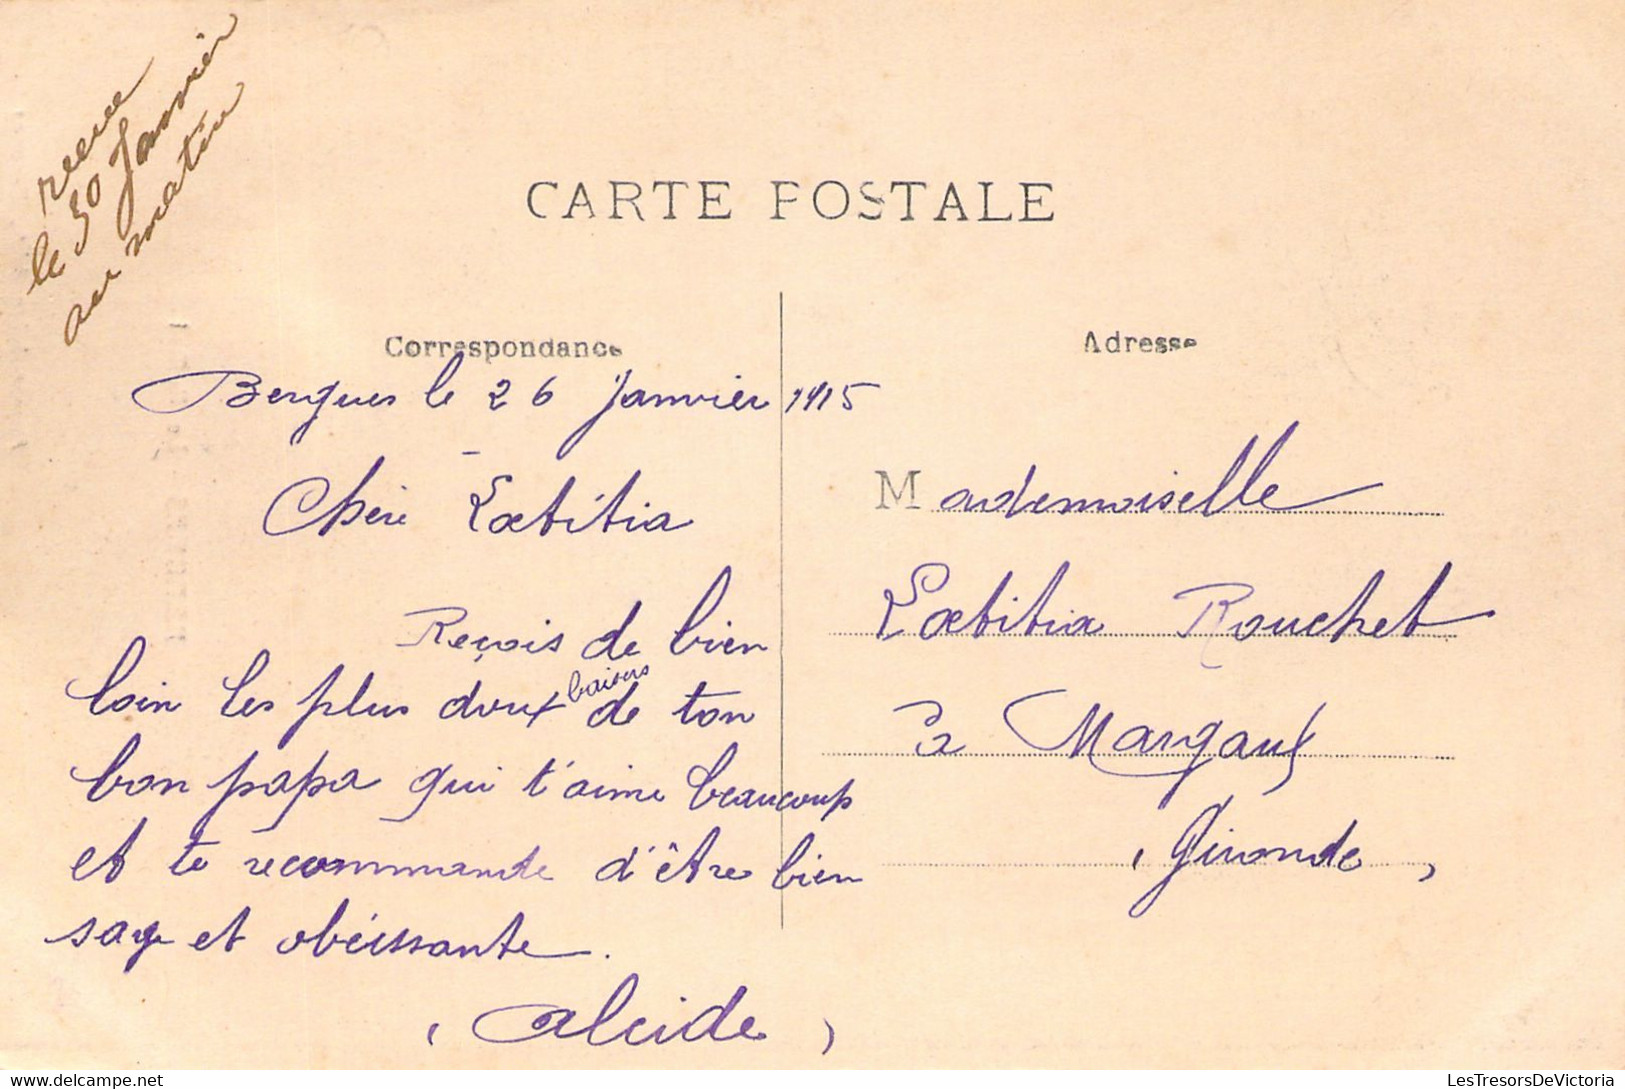 recue
le 30 Janvier
au matin
CARTE POSTALE
Correspondance
Adresse
Bergues le 26 Janvier 1915
Chère Lœtitia
Reçois de bien
loin les plus doux baisers de ton
bon papa qui t'aime beaucoup
et te recommande d'être bien
sage et obéissante.
(Alcide)
Mademoiselle
Lœtitia Rouchet
à Margaux
(Gironde)
LesTresorsDeVictoria